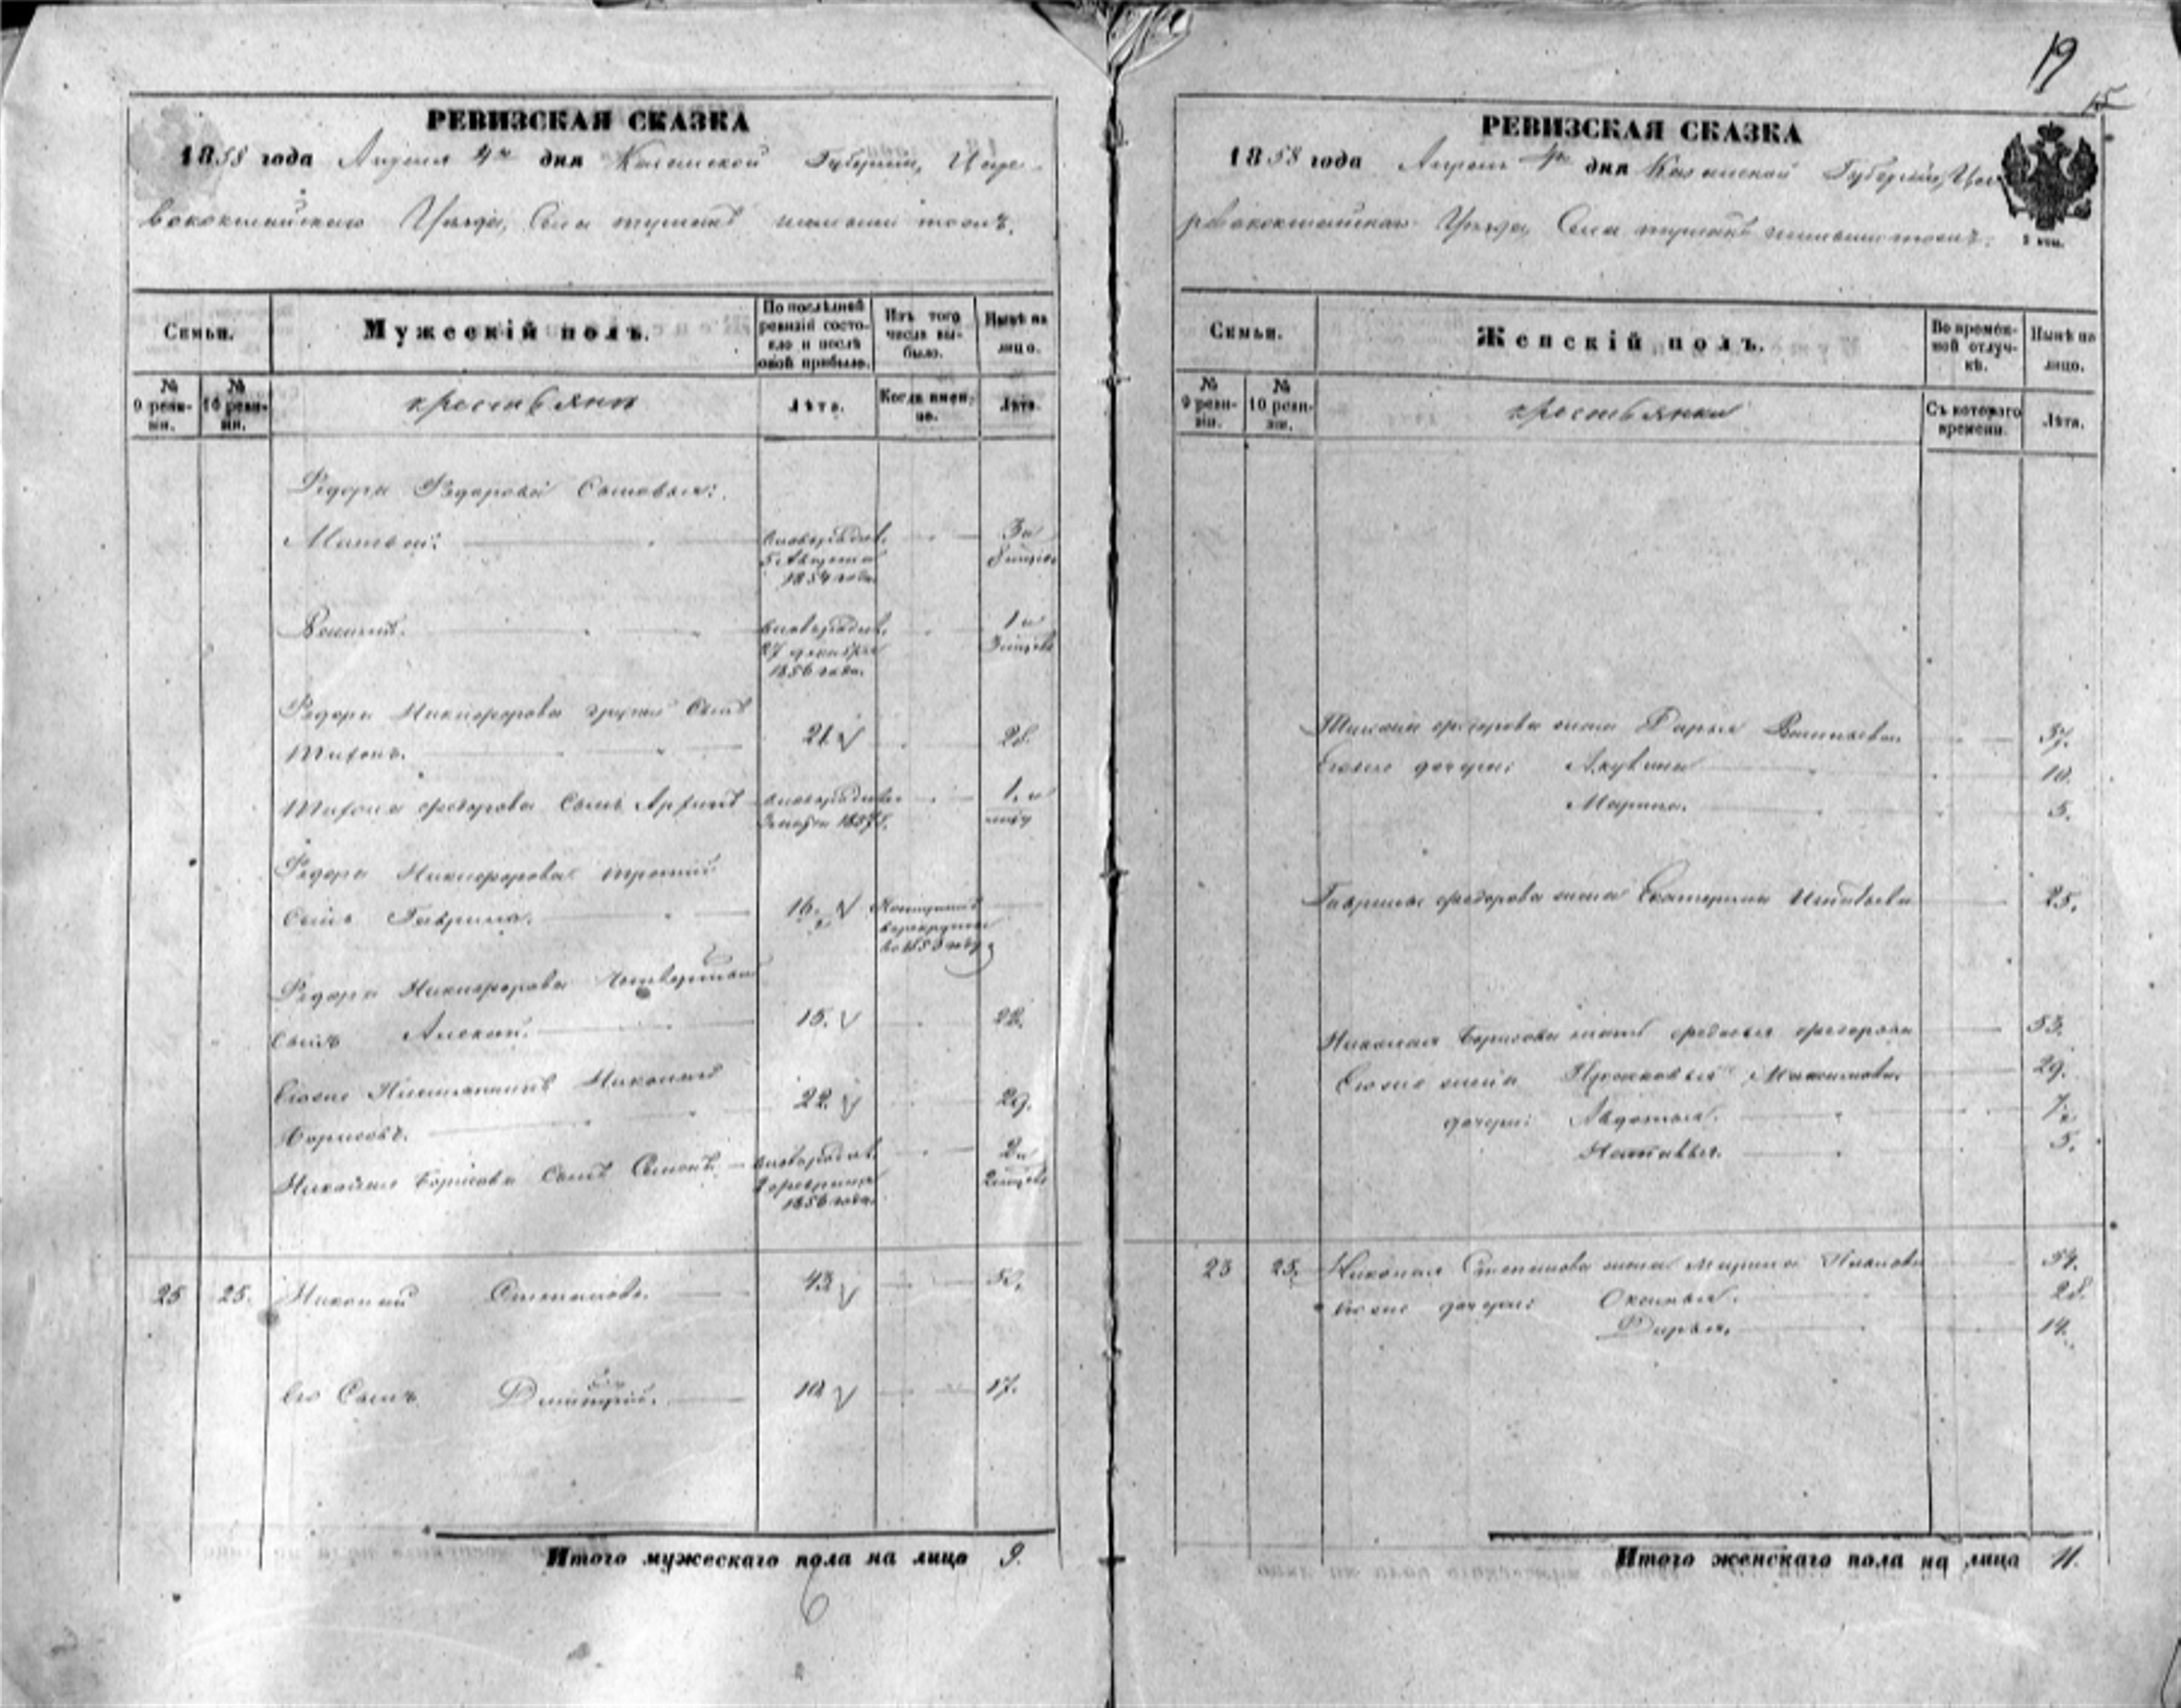 РЕВИЗСКАЯ СКАЗКА
1858 года Апреля 4го дня Казанской Губернiи, Царе-
вококшайскаго Уѣзда, Села
Семьи.
Мужескiй полъ.
По послѣдней ревизiи состо-яло и послѣ оной прибыло.
Изъ того числа вы-было.
Нынѣ на лицо.
№ 9 реви-зiи.
№ 10 реви-зiи.
крестьяне
Лѣта.
Когда имен-но.
Лѣта.
Федора Федорова Сыновья:
Матвей.
новорожден. 5 Августа 1854 года
3 и 8 мѣсяц.
Василiй.
новорожден. 27 декабря 1856 года.
1 и 3 мѣсяц.
Федора Никифорова другой Сынъ
Тихонъ.
21.
28.
Тихона федорова Сынъ Архипъ
новорожден. 1857
1. и
Федора Никифорова третiй
Сынъ Гаврила.
16.
Федора Никифорова Четвертый
Сынъ Алексей.
15.
22.
Его же Племянникъ Николай
Борисовъ.
22.
29.
Николая Борисова Сынъ Семенъ.
новорожден. 2 февраля 1856 года.
2 и 2 мѣсяц.
25
25.
Николай Степановъ.
43
50.
Его Сынъ Дмитрiй.
10
17.
Итого мужескаго пола на лицо 9.
6
19
15
РЕВИЗСКАЯ СКАЗКА
1858 года Апреля 4го дня Казанской Губернiи, Ца-
ревококшайскаго Уѣзда, Села
Семьи.
Женскiй полъ.
Во времен-ной отлуч-кѣ.
Нынѣ на лицо.
№ 9 реви-зiи.
№ 10 реви-зiи.
крестьянки
Съ котораго времени.
Лѣта.
Тихона федорова жена Дарья Васильева
37.
Его же дочери: Акулина
10.
Марина.
5.
Гаврилы федорова жена Екатерина Игнатьева
25.
Николая Борисова мать федосья федорова
53.
Его же жена Прасковья Максимова.
29.
дочери: Авдотья.
7
Наталья.
5.
25
25.
Николая Степанова жена Марина Иванова
54.
Его же дочери: Оксинья.
28.
Дарья.
14.
Итого женскаго пола на лицо 11.